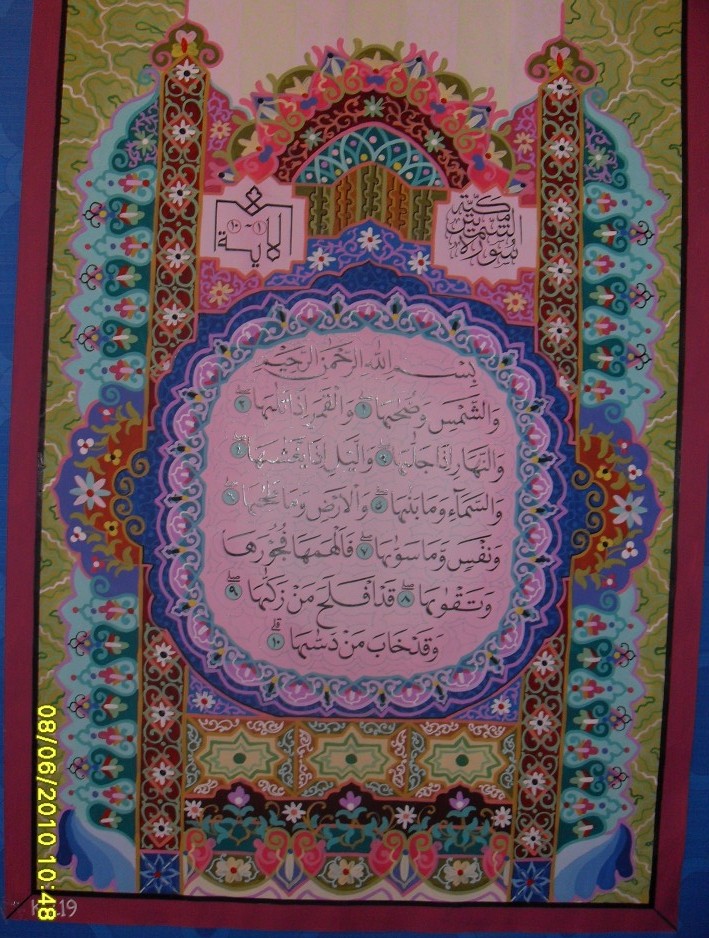 سورة الشمس مكية
الاية ١-١٠
بسم الله الرحمن الرحيم
والشمس وضحىها ١ والقمر اذا تلىها ٢
والنهار اذا جلىها ٣ واليل اذا يغشىها ٤
والسماء وما بنىها ٥ والارض وما طحىها ٦
ونفس وما سوىها ٧ فالهمها فجورها
وتقوىها ٨ قد افلح من زكىها ٩
وقد خاب من دسىها ١٠
08/06/2010 10:48